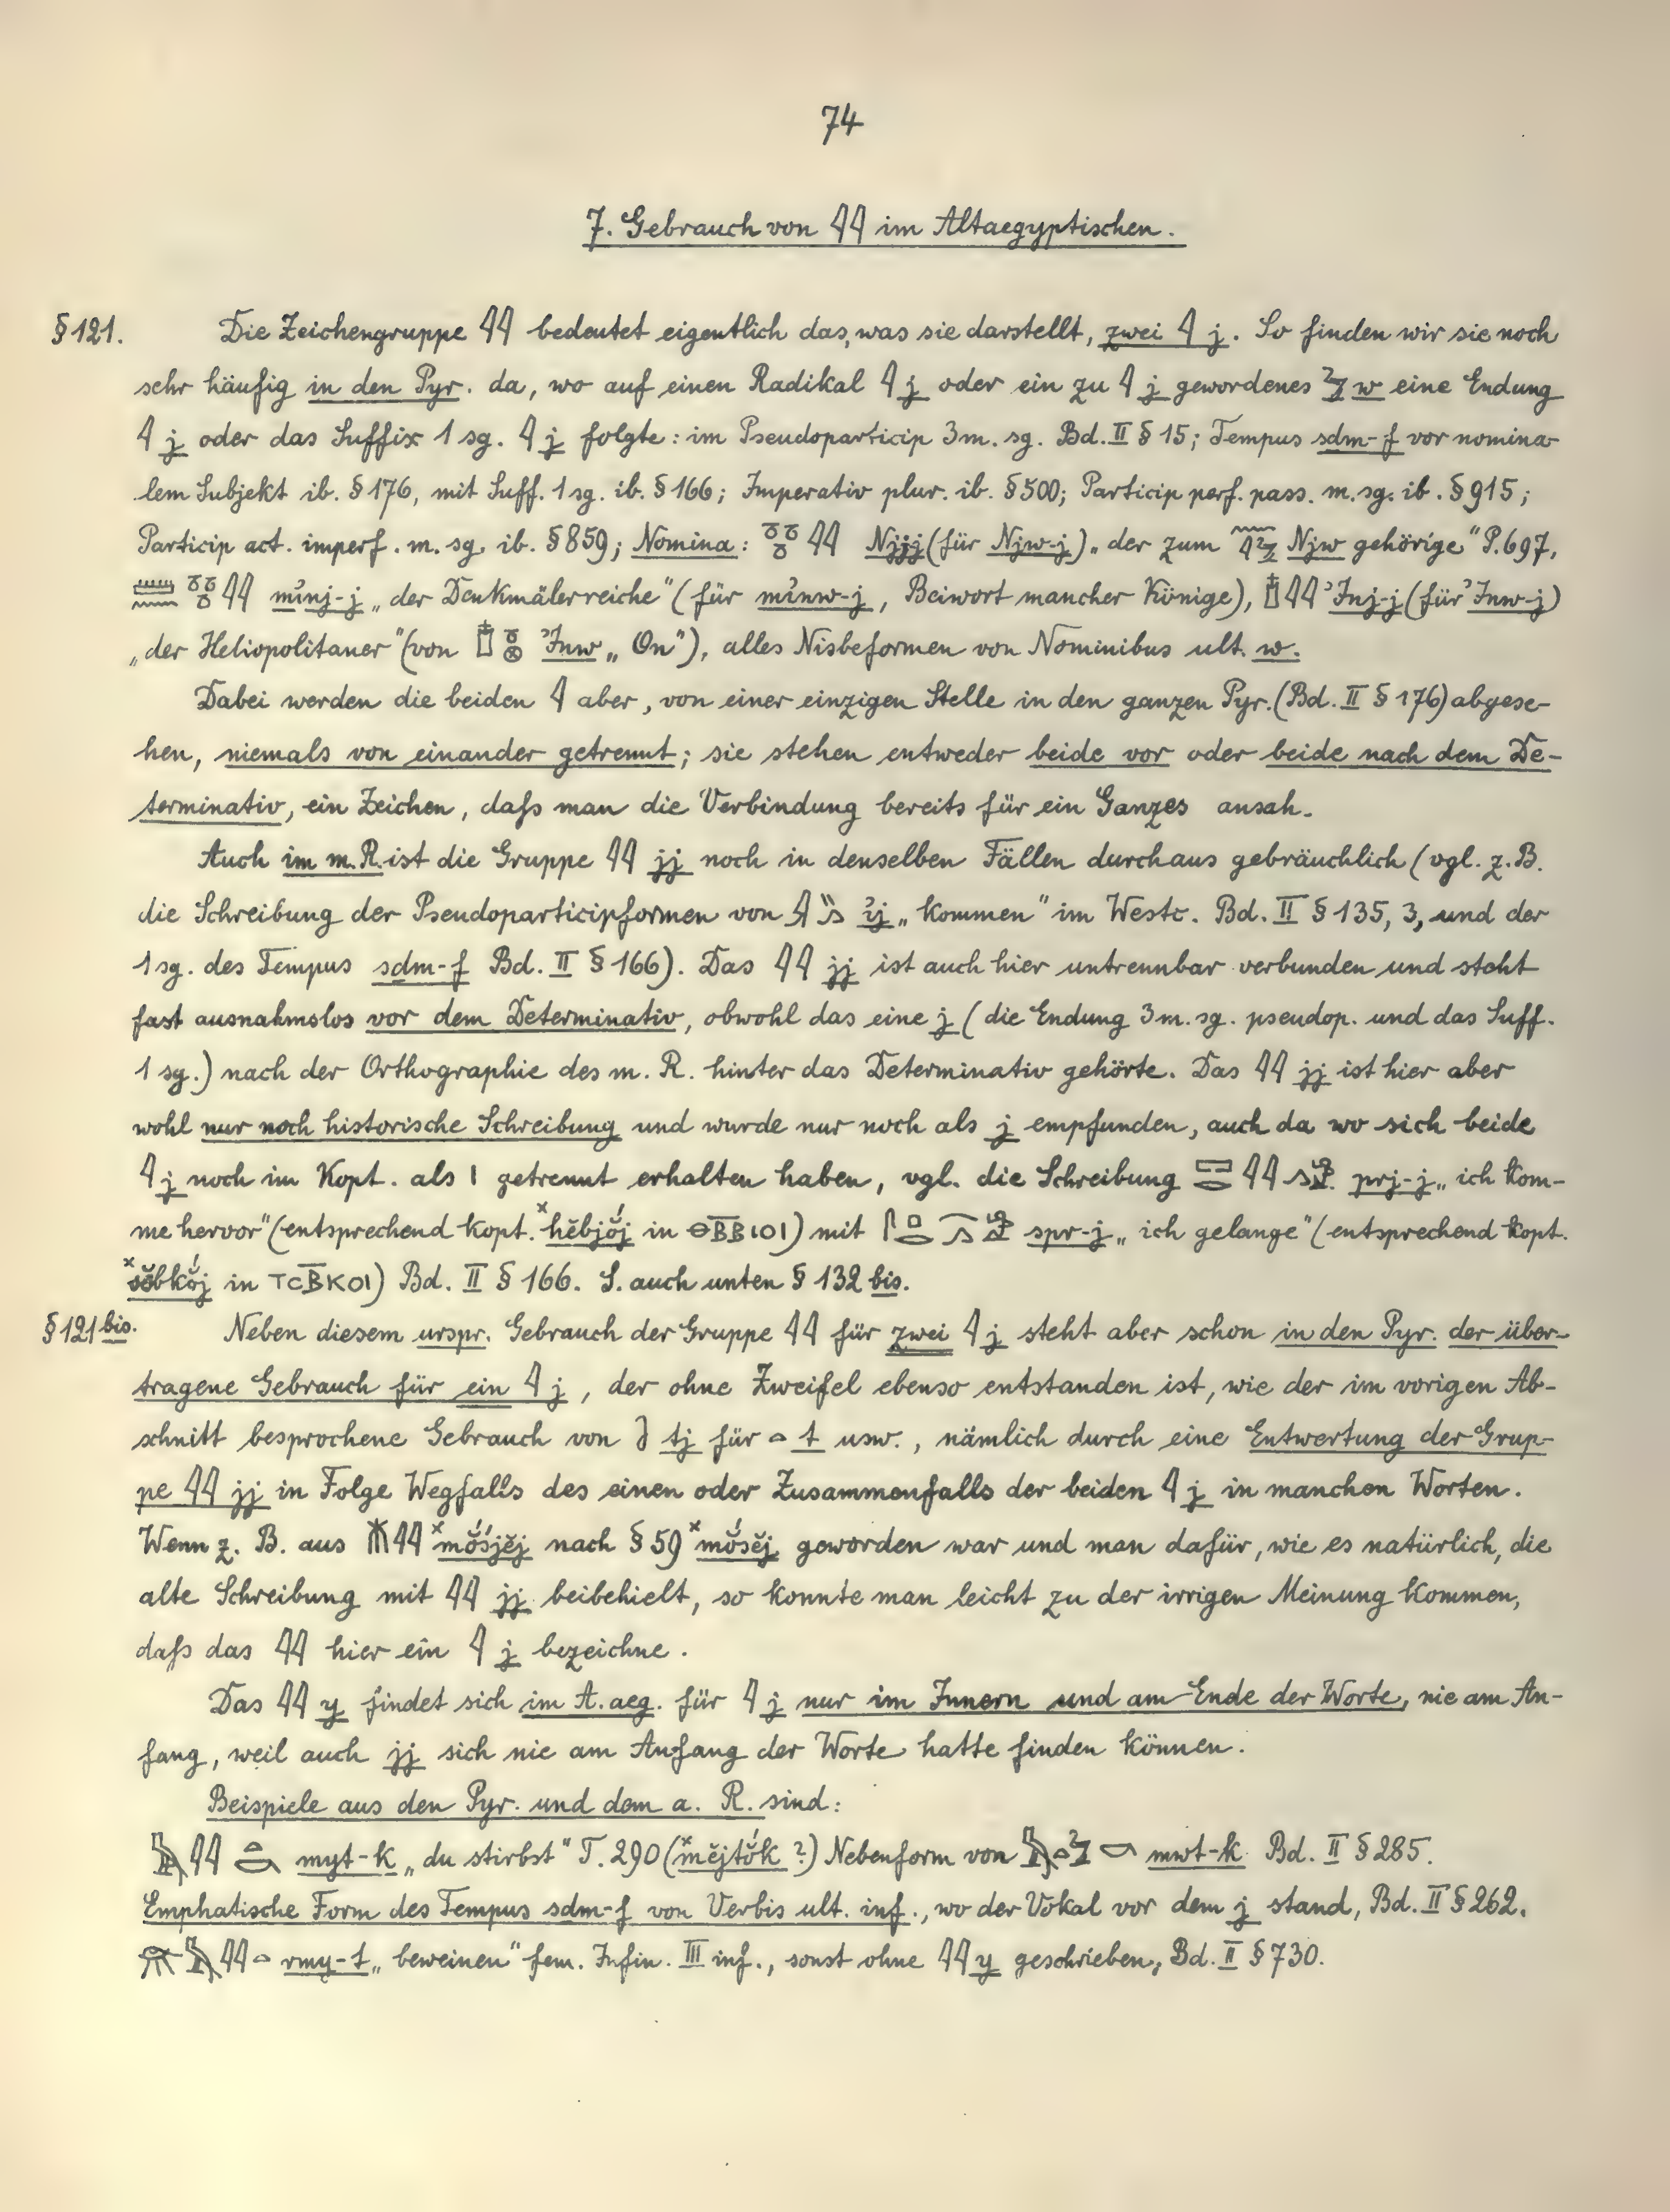 74
7. Gebrauch von 𓇋𓇋 im Altaegyptischen.
§ 121. Die Zeichengruppe 𓇋𓇋 bedeutet eigentlich das, was sie darstellt, zwei 𓇋 j. So finden wir sie noch
sehr häufig in den Pyr. da, wo auf einen Radikal 𓇋 j oder ein zu 𓇋 j gewordenes 𓅱 w eine Endung
𓇋 j oder das Suffix 1 sg. 𓇋 j folgte: im Pseudoparticip 3 m. sg. Bd. II § 15; Tempus sdm-f vor nomina-
lem Subjekt ib. § 176, mit Suff. 1 sg. ib. § 166; Imperativ plur. ib. § 500; Particip perf. pass. m. sg. ib. § 915;
Particip act. imperf. m. sg. ib. § 859; Nomina: 𓏌𓏌𓏌𓇋𓇋 Njjj (für Njw-j) „der zum 𓈖𓇋𓅱 Njw gehörige" P. 697,
𓏠𓈖𓏌𓏌𓏌𓇋𓇋 mı͗nj-j „der Denkmälerreiche" (für mı͗nw-j, Beiwort mancher Könige), 𓉺𓇋𓇋 ʾJnj-j (für ʾJnw-j)
„der Heliopolitaner" (von 𓉺𓏌𓊖 ʾJnw „On"), alles Nisbeformen von Nominibus ult. w.
Dabei werden die beiden 𓇋 aber, von einer einzigen Stelle in den ganzen Pyr. (Bd. II § 176) abgese-
hen, niemals von einander getrennt; sie stehen entweder beide vor oder beide nach dem De-
terminativ, ein Zeichen, daſs man die Verbindung bereits für ein Ganzes ansah.
Auch im m. R. ist die Gruppe 𓇋𓇋 jj noch in denselben Fällen durchaus gebräuchlich (vgl. z. B.
die Schreibung der Pseudoparticipformen von 𓇍𓏭𓂻 ı͗j „kommen" im Westc. Bd. II § 135, 3, und der
1 sg. des Tempus sdm-f Bd. II § 166). Das 𓇋𓇋 jj ist auch hier untrennbar verbunden und steht
fast ausnahmslos vor dem Determinativ, obwohl das eine j (die Endung 3 m. sg. pseudop. und das Suff.
1 sg.) nach der Orthographie des m. R. hinter das Determinativ gehörte. Das 𓇋𓇋 jj ist hier aber
wohl nur noch historische Schreibung und wurde nur noch als j empfunden, auch da wo sich beide
𓇋 j noch im Kopt. als ı getrennt erhalten haben, vgl. die Schreibung 𓉐𓂋𓇋𓇋𓂻𓀀 prj-j „ich kom-
me hervor" (entsprechend kopt. ×hĕbjŏ́j in ⲑⲃ̅ⲃⲓⲟⲓ) mit 𓋴𓊪𓂋𓂻𓀀 spr-j „ich gelange" (entsprechend kopt.
×sĕbkŏ́j in ⲧⲥⲃ̅ⲕⲟⲓ) Bd. II § 166. S. auch unten § 132 bis.
§ 121 bis. Neben diesem urspr. Gebrauch der Gruppe 𓇋𓇋 für zwei 𓇋 j steht aber schon in den Pyr. der über-
tragene Gebrauch für ein 𓇋 j, der ohne Zweifel ebenso entstanden ist, wie der im vorigen Ab-
schnitt besprochene Gebrauch von 𓍘 tj für 𓏏 t usw., nämlich durch eine Entwertung der Grup-
pe 𓇋𓇋 jj in Folge Wegfalls des einen oder Zusammenfalls der beiden 𓇋 j in manchen Worten.
Wenn z. B. aus 𓄟𓇋𓇋 ×mŏ́śjĕj nach § 59 ×mŏ́sĕj geworden war und man dafür, wie es natürlich, die
alte Schreibung mit 𓇋𓇋 jj beibehielt, so konnte man leicht zu der irrigen Meinung kommen,
daſs das 𓇋𓇋 hier ein 𓇋 j bezeichne.
Das 𓇋𓇋 y findet sich im A. aeg. für 𓇋 j nur im Innern und am Ende der Worte, nie am An-
fang, weil auch jj sich nie am Anfang der Worte hatte finden können.
Beispiele aus den Pyr. und dem a. R. sind:
𓅓𓇋𓇋𓏏𓎡 myt-k „du stirbst" T. 290 (×mĕjtŏ́k ?) Nebenform von 𓅓𓏏𓅱𓎡 mwt-k Bd. II § 285.
Emphatische Form des Tempus sdm-f von Verbis ult. inf., wo der Vokal vor dem j stand, Bd. II § 262.
𓁿𓅓𓇋𓇋𓏏 rmy-t „beweinen" fem. Infin. III inf., sonst ohne 𓇋𓇋 y geschrieben, Bd. II § 730.